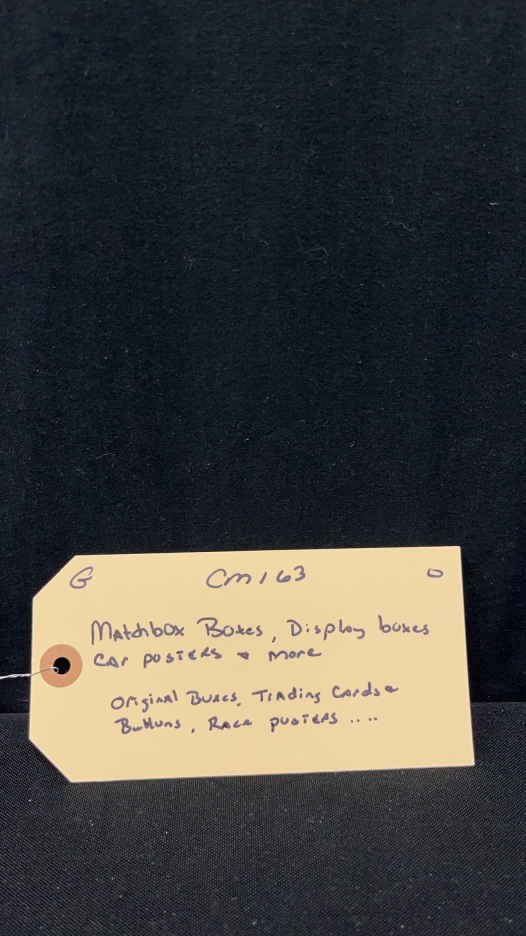 G CM163 0
Matchbox Boxes, Display boxes
CAr posters & more
Original Boxes, Trading Cards &
Buttons, Race posters ....